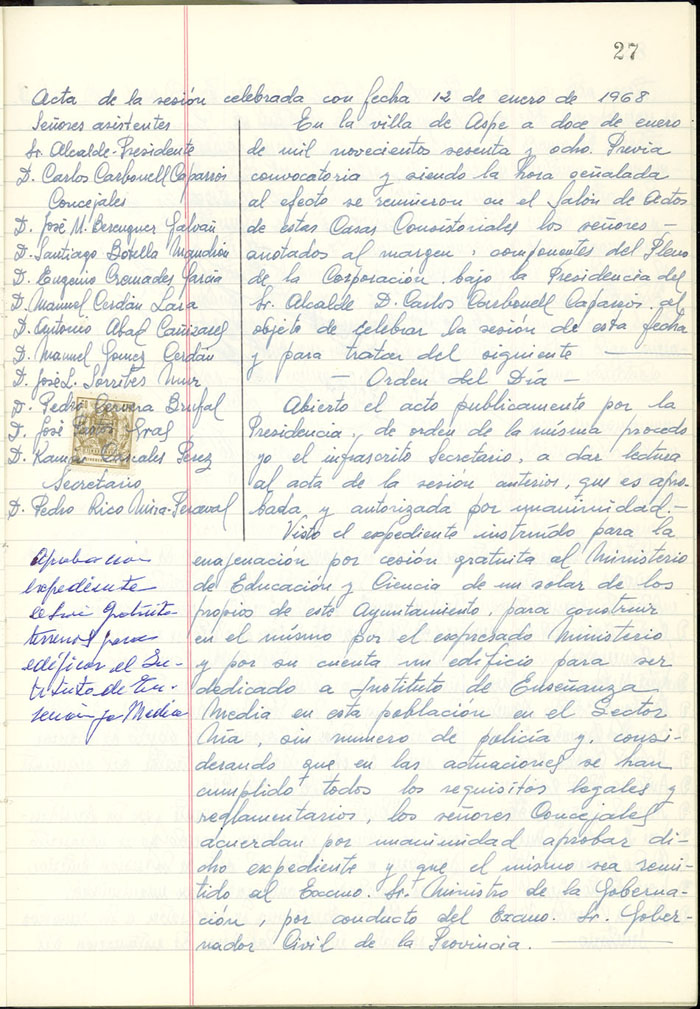 27
Acta de la sesión celebrada con fecha 12 de enero de 1968
Señores asistentes
Sr. Alcalde-Presidente
D. Carlos Carbonell Caparrós
Concejales
D. José M. Berenguer Galván
D. Santiago Botella Mandión
D. Eugenio Cremades García
D. Manuel Cerdán Lara
D. Antonio Abad Cañizares
D. Manuel Gomez Cerdán
D. José L. Sorribes Mur
D. Pedro Cervera Brufal
D. José Pastor Gras
D. Ramón Pascales Perez
Secretario
D. Pedro Rico Mira-Perceval
En la villa de Aspe a doce de enero
de mil novecientos sesenta y ocho. Previa
convocatoria y siendo la hora señalada
al efecto se reunieron en el Salón de Actos
de estas Casas Consistoriales los señores —
anotados al margen, componentes del Pleno
de la Corporación, bajo la Presidencia del
Sr. Alcalde D. Carlos Carbonell Caparros, al
objeto de celebrar la sesión de esta fecha
y para tratar del siguiente —
— Orden del Día —
Abierto el acto publicamente por la
Presidencia, de orden de la misma procedo
yo el infrascrito Secretario, a dar lectura
al acta de la sesión anterior, que es apro-
bada, y autorizada por unanimidad.—
Aprobacion
expediente
cesion gratuita
terrenos para
edificar el Ins-
tituto de En-
señanza Media
Visto el expediente instruído para la
enajenación por cesión gratuita al Ministerio
de Educación y Ciencia de un solar de los
propios de este Ayuntamiento, para construir
en el mismo por el expresado Ministerio
y por su cuenta un edificio para ser
dedicado a Instituto de Enseñanza
Media en esta población en el Sector
Vía, sin numero de policía y, consi-
derando que en las actuaciones se han
cumplido todos los requisitos legales y
reglamentarios, los señores Concejales
acuerdan por unanimidad aprobar di-
cho expediente y que el mismo sea remi-
tido al Excmo. Sr. Ministro de la Goberna-
ción, por conducto del Excmo. Sr. Gober-
nador Civil de la Provincia. —